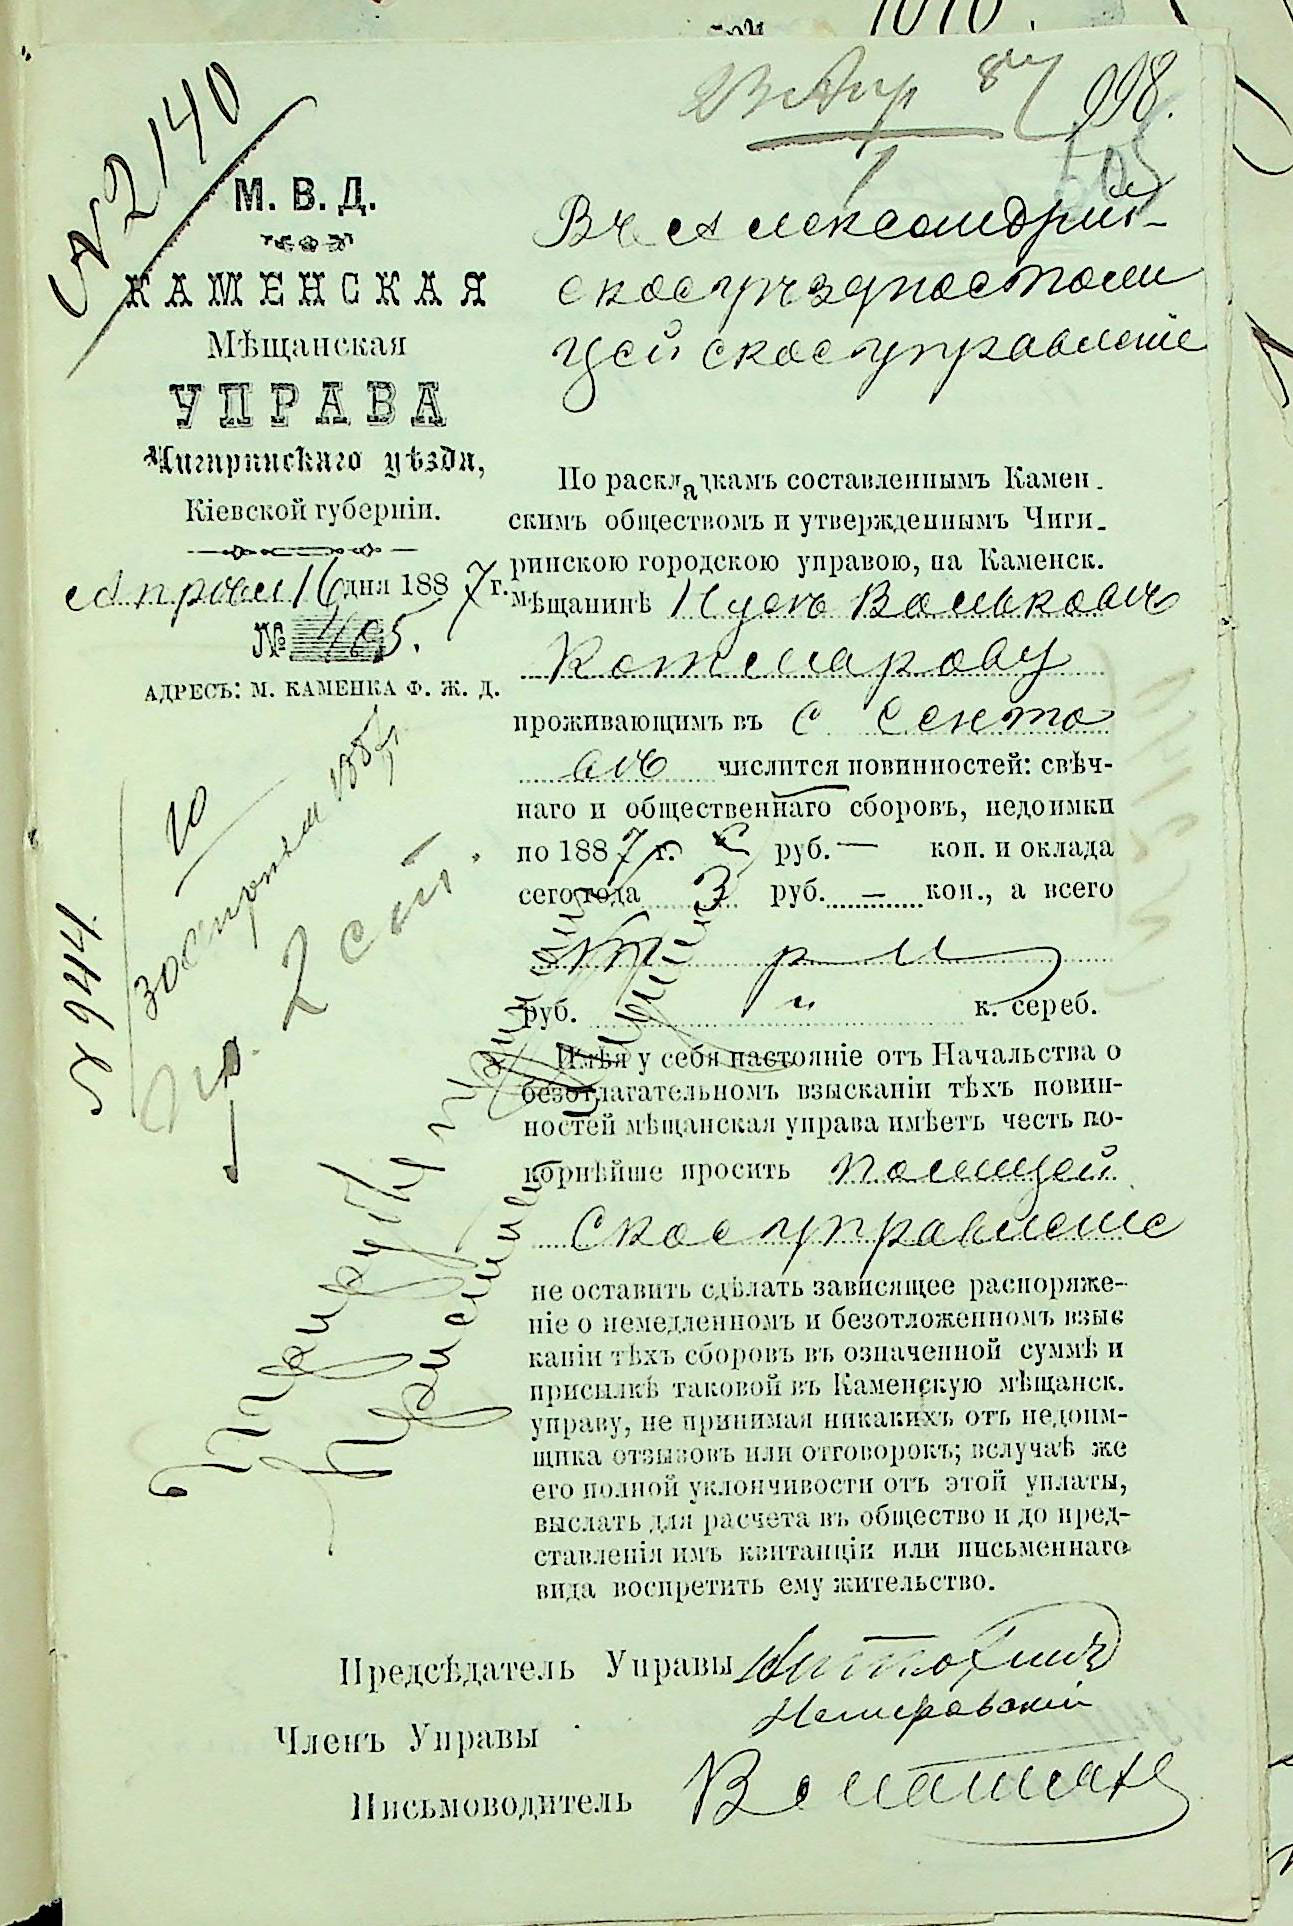 1010.
23 Апр 87
998.
505
№ 2140
М. В. Д.
КАМЕНСКАЯ
Мѣщанская
УПРАВА
Чигиринскаго уѣзда,
Кіевской губерніи.
Апреля 16 дня 1887 г.
№ 405.
АДРЕСЪ: М. КАМЕНКА Ф. Ж. Д.
Въ Александрій-
ское уѣздное поли
цейское управленіе
По раскладкамъ составленнымъ Камен-
скимъ обществомъ и утвержденнымъ Чиги-
ринскою городскою управою, на Каменск.
мѣщанинѣ Ицекъ Вольковъ
Котляров
проживающимъ въ с
числится повинностей: свѣч-
наго и общественнаго сборовъ, недоимки
по 1887 г. руб. — коп. и оклада
сего года 3 руб. — коп., а всего
три
руб. " к. сереб.
Имѣя у себя настояніе отъ Начальства о
безотлагательномъ взысканіи тѣхъ повин-
ностей мѣщанская управа имѣетъ честь по-
корнѣйше просить полицей
ское управленіе
не оставить сдѣлать зависящее распоряже-
ніе о немедленномъ и безотложенномъ взыс
каніи тѣхъ сборовъ въ означенной суммѣ и
присылкѣ таковой въ Каменскую мѣщанск.
управу, не принимая никакихъ отъ недоим-
щика отзывовъ или отговорокъ; вслучаѣ же
его полной уклончивости отъ этой уплаты,
выслать для расчета въ общество и до пред-
ставленія имъ квитанціи или письменнаго
вида воспретить ему жительство.
10
30 Апреля 1887 г.
Пр. 2 ст.
№ 944.
Предсѣдатель Управы
Членъ Управы
Письмоводитель